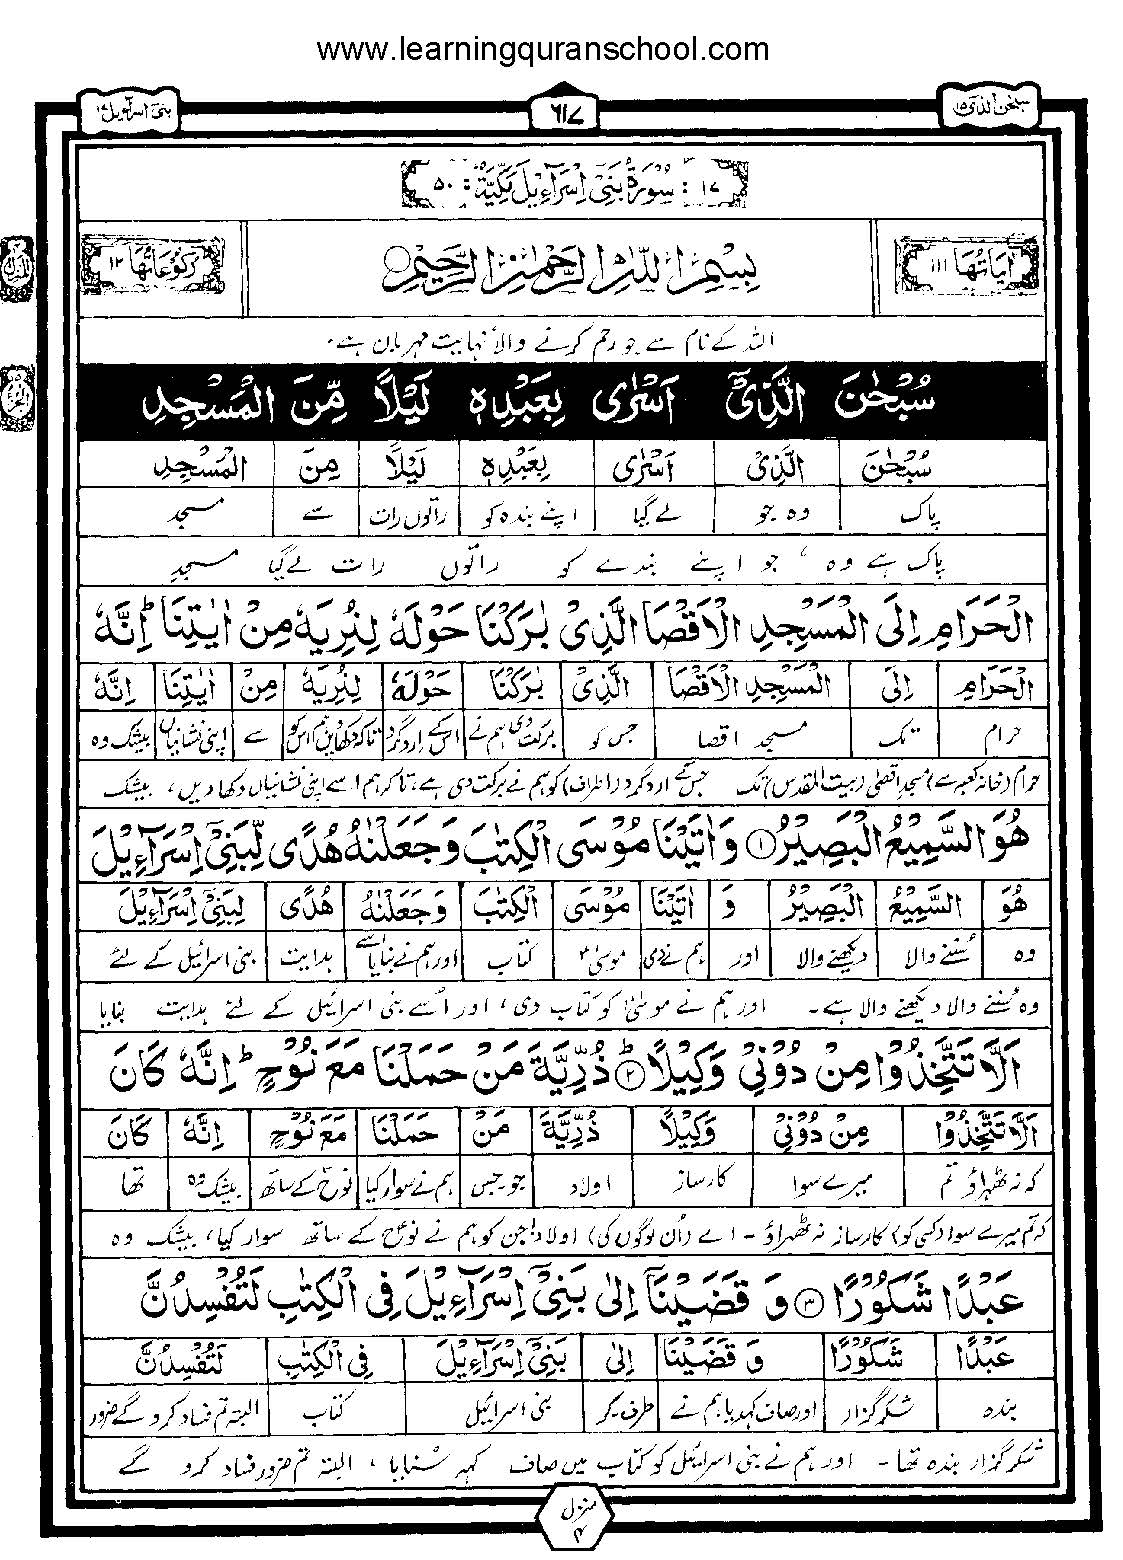 www.learningquranschool.com
سبحٰن الذی ١٥
٦١٧
بنی اسرآءیل ١٧
١٧ : سُوْرَةُ بَنِیْۤ اِسْرَآءِيْلَ مَكِّيَّةٌ : ٥٠
اٰيَاتُهَا ١١١
بِسْمِ اللّٰهِ الرَّحْمٰنِ الرَّحِيْمِ
رُكُوْعَاتُهَا ١٢
اللہ کے نام سے جو رحم کرنے والا نہایت مہربان ہے۔
سُبْحٰنَ الَّذِیْۤ اَسْرٰی بِعَبْدِهٖ لَيْلًا مِّنَ الْمَسْجِدِ
سُبْحٰنَ الَّذِیْ اَسْرٰی بِعَبْدِهٖ لَيْلًا مِنَ الْمَسْجِدِ
پاک وہ جو لے گیا اپنے بندہ کو راتوں رات سے مسجد
پاک ہے وہ ، جو اپنے بندے کو راتوں رات لے گیا مسجدِ
الْحَرَامِ اِلَی الْمَسْجِدِ الْاَقْصَا الَّذِیْ بٰرَكْنَا حَوْلَهٗ لِنُرِيَهٗ مِنْ اٰيٰتِنَا ؕ اِنَّهٗ
الْحَرَامِ اِلَی الْمَسْجِدِ الْاَقْصَا الَّذِیْ بٰرَكْنَا حَوْلَهٗ لِنُرِيَهٗ مِنْ اٰيٰتِنَا اِنَّهٗ
حرام تک مسجد اقصا جس کو برکت دی ہم نے اس کے ارد گرد تاکہ دکھا دیں ہم اس کو سے اپنی نشانیاں بیشک وہ
حرام (خانہ کعبہ سے) مسجدِ اقصٰی (بیت المقدس) تک جس کے ارد گرد (اطراف) کو ہم نے برکت دی ہے، تاکہ ہم اسے اپنی نشانیاں دکھا دیں، بیشک
هُوَ السَّمِيْعُ الْبَصِيْرُ ١ وَ اٰتَيْنَا مُوْسَی الْكِتٰبَ وَ جَعَلْنٰهُ هُدًی لِّبَنِیْۤ اِسْرَآءِيْلَ
هُوَ السَّمِيْعُ الْبَصِيْرُ وَ اٰتَيْنَا مُوْسَی الْكِتٰبَ وَ جَعَلْنٰهُ هُدًی لِبَنِیْۤ اِسْرَآءِيْلَ
وہ سُننے والا دیکھنے والا اور ہم نے دی موسیٰ کتاب اور ہم نے بنایا اسے ہدایت بنی اسرائیل کے لئے
وہ سُننے والا دیکھنے والا ہے۔ اور ہم نے موسیٰ کو کتاب دی ، اور اُسے بنی اسرائیل کے لئے ہدایت بنایا
اَلَّا تَتَّخِذُوْا مِنْ دُوْنِیْ وَكِيْلًا ٢ ذُرِّيَّةَ مَنْ حَمَلْنَا مَعَ نُوْحٍ ؕ اِنَّهٗ كَانَ
اَلَّا تَتَّخِذُوْا مِنْ دُوْنِیْ وَكِيْلًا ذُرِّيَّةَ مَنْ حَمَلْنَا مَعَ نُوْحٍ اِنَّهٗ كَانَ
کہ نہ ٹھہراؤ تم میرے سوا کارساز اولاد جو جس ہم نے سوار کیا نوحؑ کے ساتھ بیشک وہ تھا
کہ تم میرے سوا (کسی کو) کارساز نہ ٹھہراؤ - اے (اُن لوگوں کی) اولاد! جن کو ہم نے نوحؑ کے ساتھ سوار کیا، بیشک وہ
عَبْدًا شَكُوْرًا ٣ وَ قَضَيْنَاۤ اِلٰی بَنِیْۤ اِسْرَآءِيْلَ فِی الْكِتٰبِ لَتُفْسِدُنَّ
عَبْدًا شَكُوْرًا وَ قَضَيْنَا اِلٰی بَنِیْۤ اِسْرَآءِيْلَ فِی الْكِتٰبِ لَتُفْسِدُنَّ
بندہ شکر گزار اور صاف کہدیا ہم نے طرف۔کو بنی اسرائیل کتاب البتہ تم فساد کرو گے ضرور
شکر گزار بندہ تھا - اور ہم نے بنی اسرائیل کو کتاب میں صاف کہہ سُنایا ، البتہ تم ضرور فساد کرو گے
منزل ٤